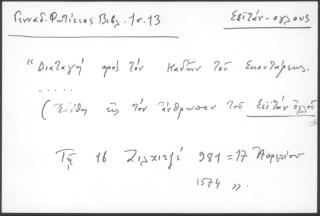 Γενναδ. Φωτίειος Βιβλ. 1σ. 13
Σεϊτάν-ογλους
"Διαταγή προς τον Καδήν του Σκουτάρεως.
.....
(Εδόθη εις τον άνθρωπον του Σεϊτάν όγλου
Τη 16 Ζιλχιτζέ 981 = 17 Απριλίου
1574 ".